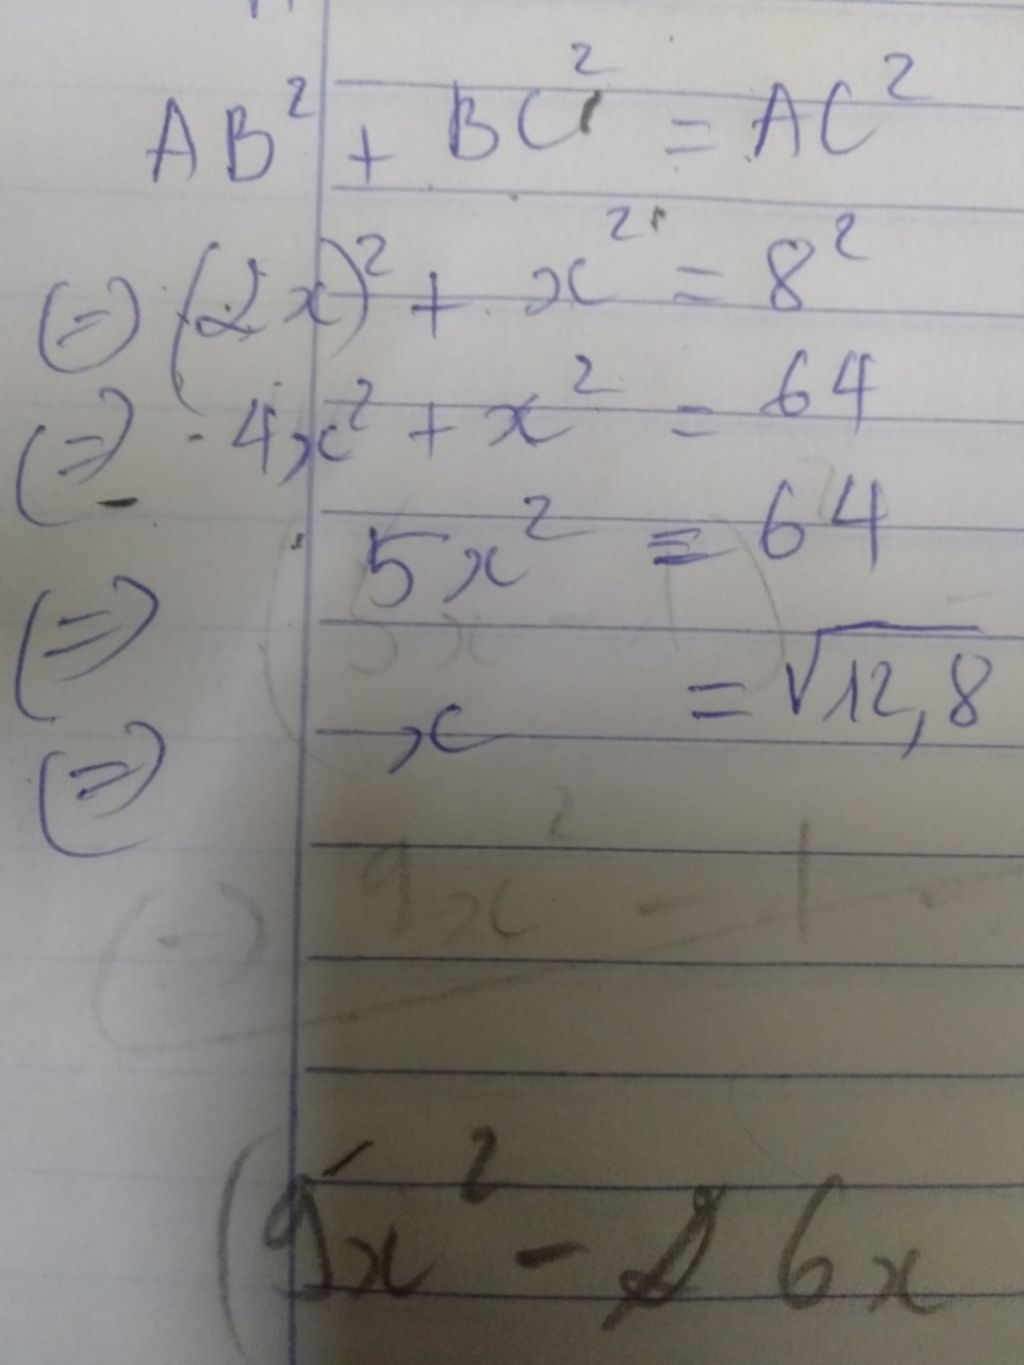 AB² + BC² = AC²
(=) (2x)² + x² = 8²
(=) 4x² + x² = 64
(=) 5x² = 64
(=) x = √12,8
(=) 9x² - 1
(9x² - 6x